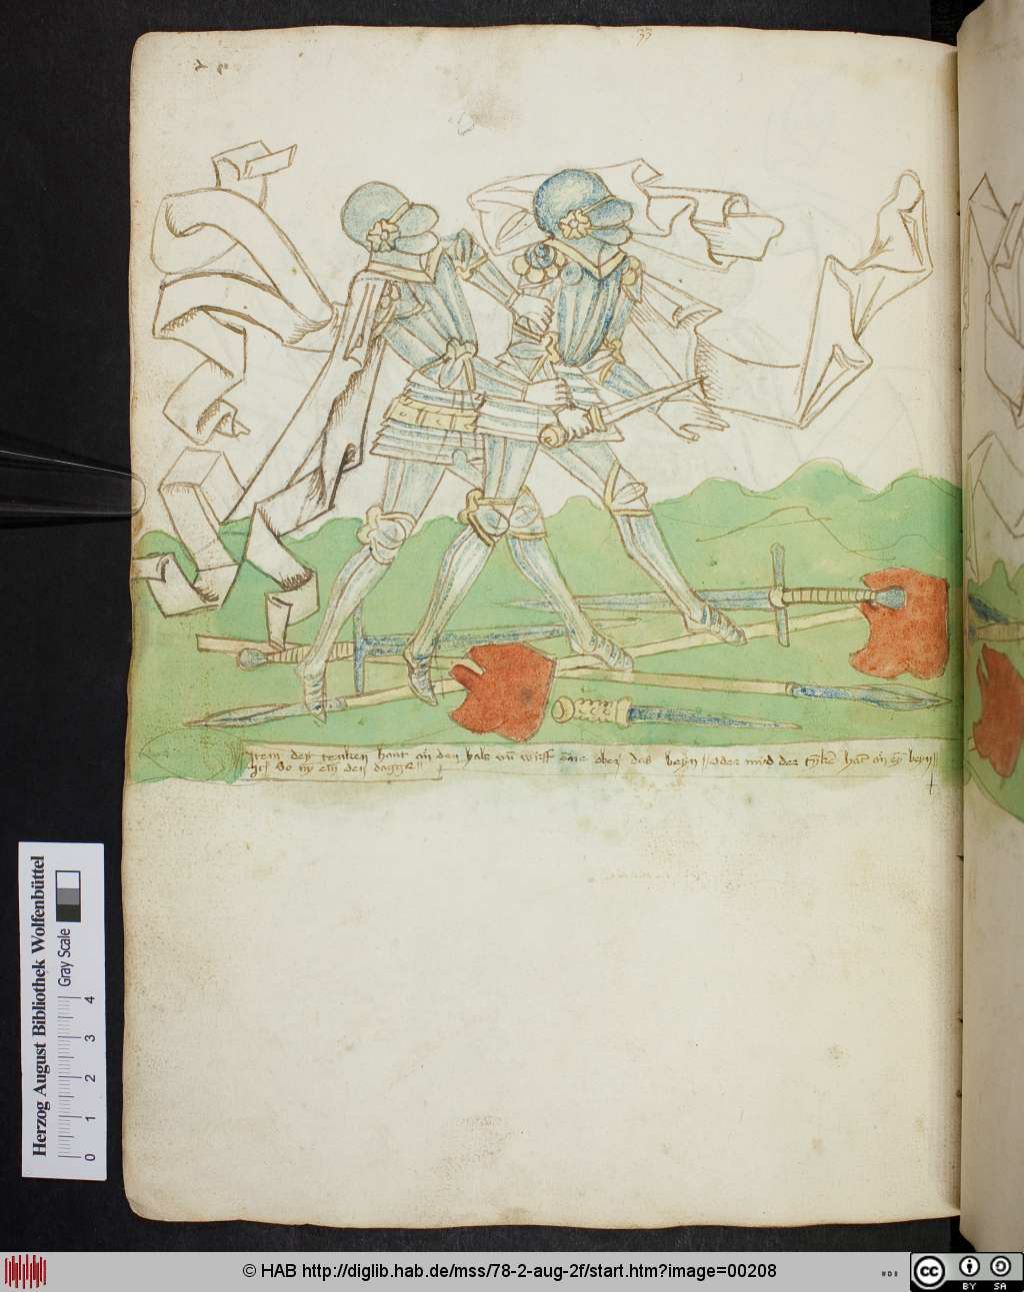 33
Item den tenken hant an den hals vn̄ wirff ene ober das beyn // oder mid der
So ny em den dagge //
Herzog August Bibliothek Wolfenbüttel
Gray Scale
0 1 2 3 4
© HAB http://diglib.hab.de/mss/78-2-aug-2f/start.htm?image=00208
cc BY SA